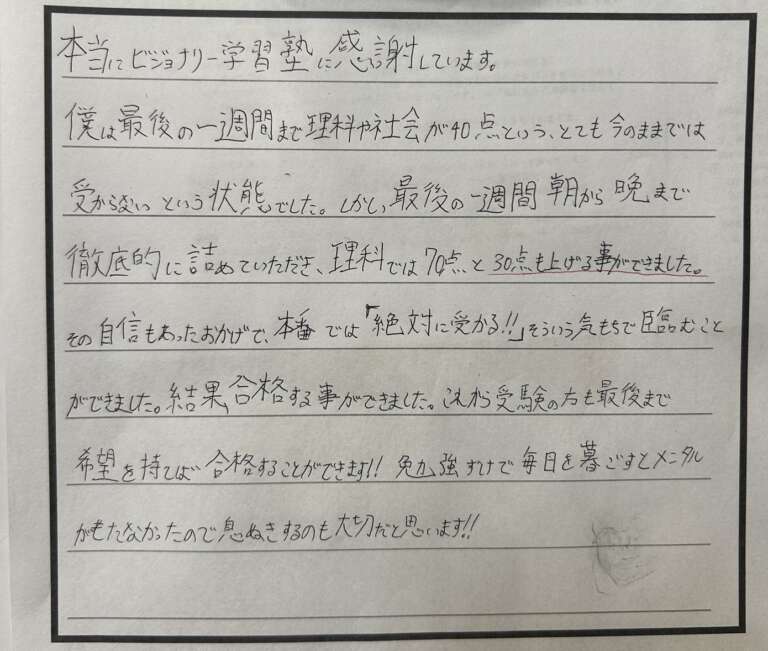 本当にビジョナリー学習塾に感謝しています。
僕は最後の一週間まで理科や社会が40点という、とても今のままでは
受からないという状態でした。しかし、最後の一週間朝から晩まで
徹底的に詰めていただき、理科では70点と30点も上げる事ができました。
その自信もあったおかげで、本番では「絶対に受かる!!」そういう気もちで臨むこと
ができました。結果、合格する事ができました。これから受験の方も最後まで
希望を持てば合格することができます!! 勉強だけで毎日を暮ごすとメンタル
がもたなかったので息ぬきするのも大切だと思います!!